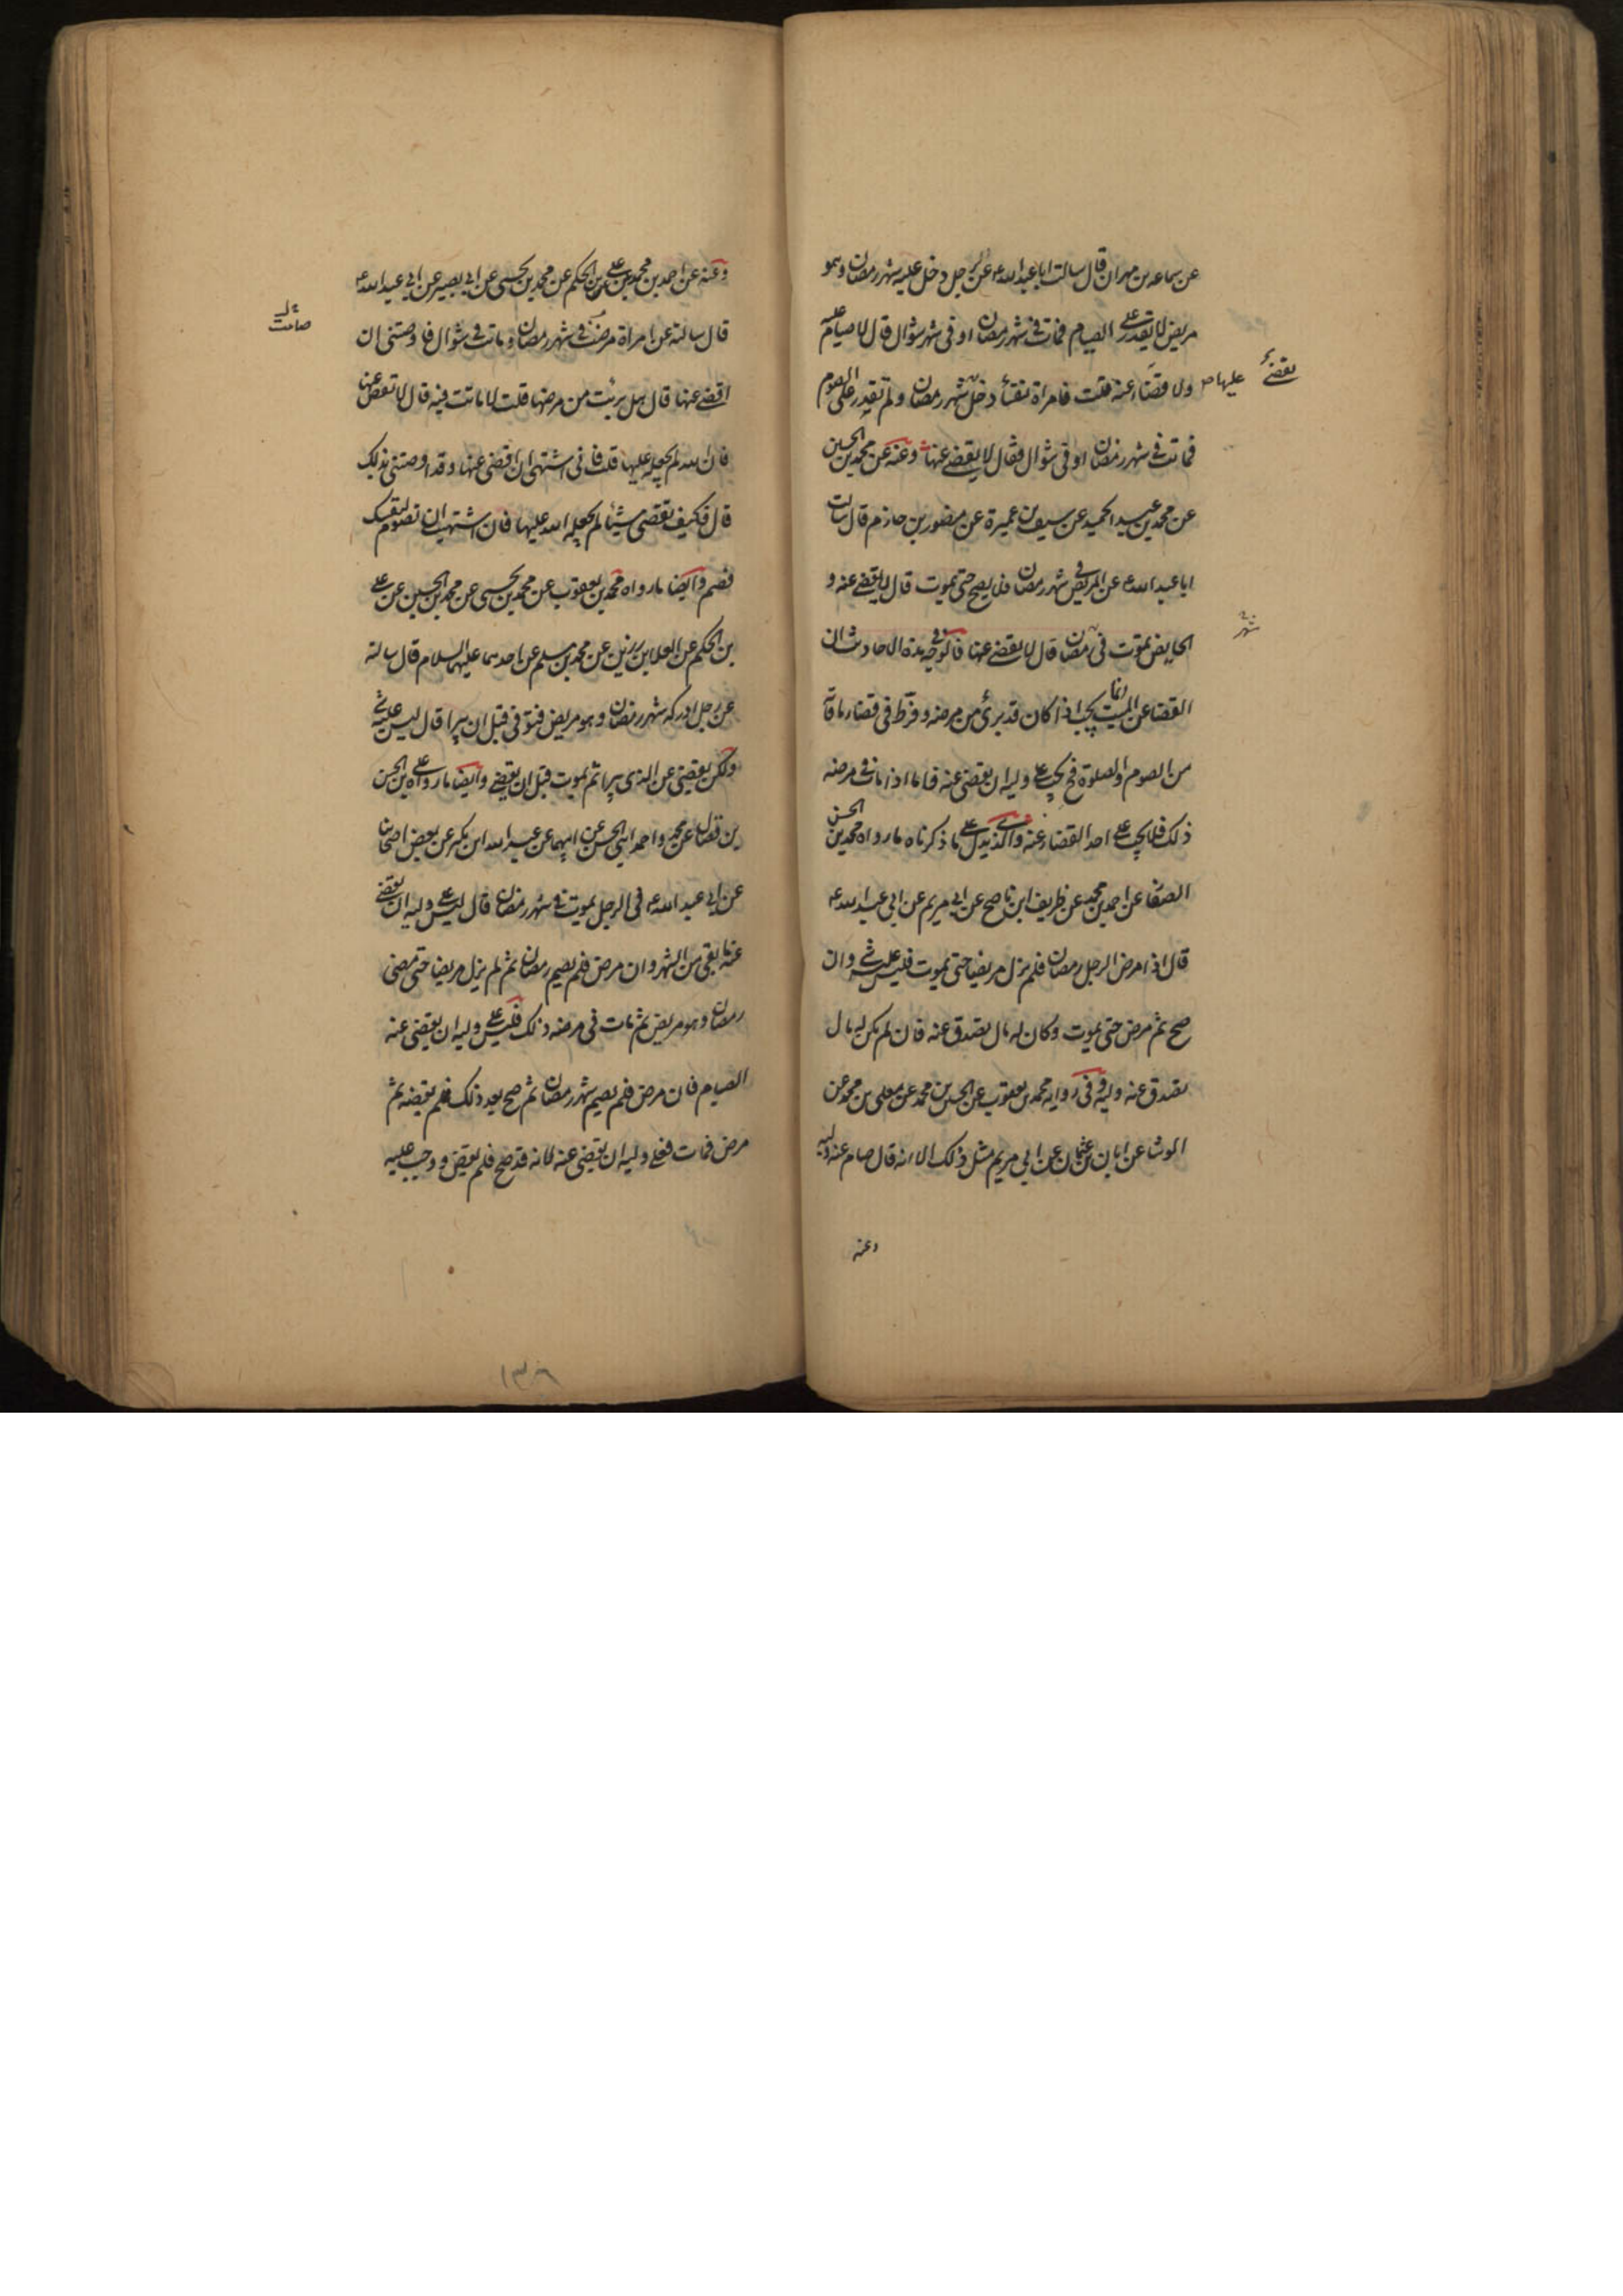 عن سماعه بن مهران قال سالت ابا عبد الله ع عن رجل دخل عليه شهر رمضان وهو
مريض لا يقدر على الصيام فمات فى شهر رمضان او فى شهر شوال قال لا صيام عليه
ولا قضاء عنه قلت فامراة نفساء دخل شهر رمضان ولم تقدر على الصوم
عليها
يقضى
فماتت فى شهر رمضان او فى شوال فقال لا يقضى عنها وعنه عن محمد بن الحسين
عن محمد بن عبد الحميد عن سيف بن عميرة عن منصور بن حازم قال سالت
ابا عبد الله ع عن المريض فى شهر رمضان فلا يصح حتى يموت قال لا يقضى عنه و
الحايض تموت فى رمضان قال لا يقضى عنها فالوجه فى هذه الاحاديث ان
شهر
القضا عن الميت انما يجب اذا كان قد برئ من مرضه وفرط فى قضاء ما فاته
من الصوم والصلوة فح يجب على وليه ان يقضى عنه فاما اذا مات فى مرضه
ذلك فلا يجب على احد القضاء عنه والذى يدل على ما ذكرناه ما رواه محمد بن الحسن
الصفا عن احمد بن محمد عن ظريف ابن ناصح عن ابى مريم عن ابى عبد الله ع
قال اذا مرض الرجل رمضان فلم يزل مريضا حتى يموت فليس عليه شى وان
صح ثم مرض حتى يموت وكان له مال تصدق عنه فان لم يكن له مال
تصدق عنه وليه وفى رواية محمد بن يعقوب عن الحسين بن محمد عن معلى بن محمد عن
الوشا عن ابان بن عثمان عن ابى مريم مثل ذلك الا انه قال صام عنه وليه
وعنه
وعنه عن احمد بن محمد عن على بن الحكم عن محمد بن يحيى عن ابى بصير عن ابى عبد الله ع
قال سالته عن امراة مرضت فى شهر رمضان وماتت فى شوال فاوصتنى ان
اقضى عنها قال هل برئت من مرضها قلت لا ماتت فيه قال لا تقض عنها
فان الله لم يجعله عليها قلت فانى اشتهى ان اقضى عنها وقد اوصتنى بذلك
قال فكيف تقضى شيئا لم يجعله الله عليها فان اشتهيت ان تصوم لنفسك
فصم وايضا ما رواه محمد بن يعقوب عن محمد بن يحيى عن محمد بن الحسين عن على
بن الحكم عن العلا بن رزين عن محمد بن مسلم عن احدهما عليهما السلام قال سالته
عن رجل ادركه شهر رمضان وهو مريض فتوفى قبل ان يبرا قال ليس عليه شى
ولكن يقضى عن الذى يبرا ثم يموت قبل ان يقضى وايضا ما رواه على بن الحسن
بن فضال عن محمد واحمد ابنى الحسن عن ابيهما عن عبد الله ابن بكير عن بعض اصحابنا
عن ابى عبد الله ع فى الرجل يموت فى شهر رمضان قال ليس على وليه ان يقضى
عنه ما بقى من الشهر وان مرض فلم يصم رمضان ثم لم يزل مريضا حتى مضى
رمضان وهو مريض ثم مات فى مرضه ذلك فليس على وليه ان يقضى عنه
الصيام فان مرض فلم يصم شهر رمضان ثم صح بعد ذلك فلم يقضه ثم
مرض فمات فعلى وليه ان يقضى عنه لانه قد صح فلم يقض ووجب عليه